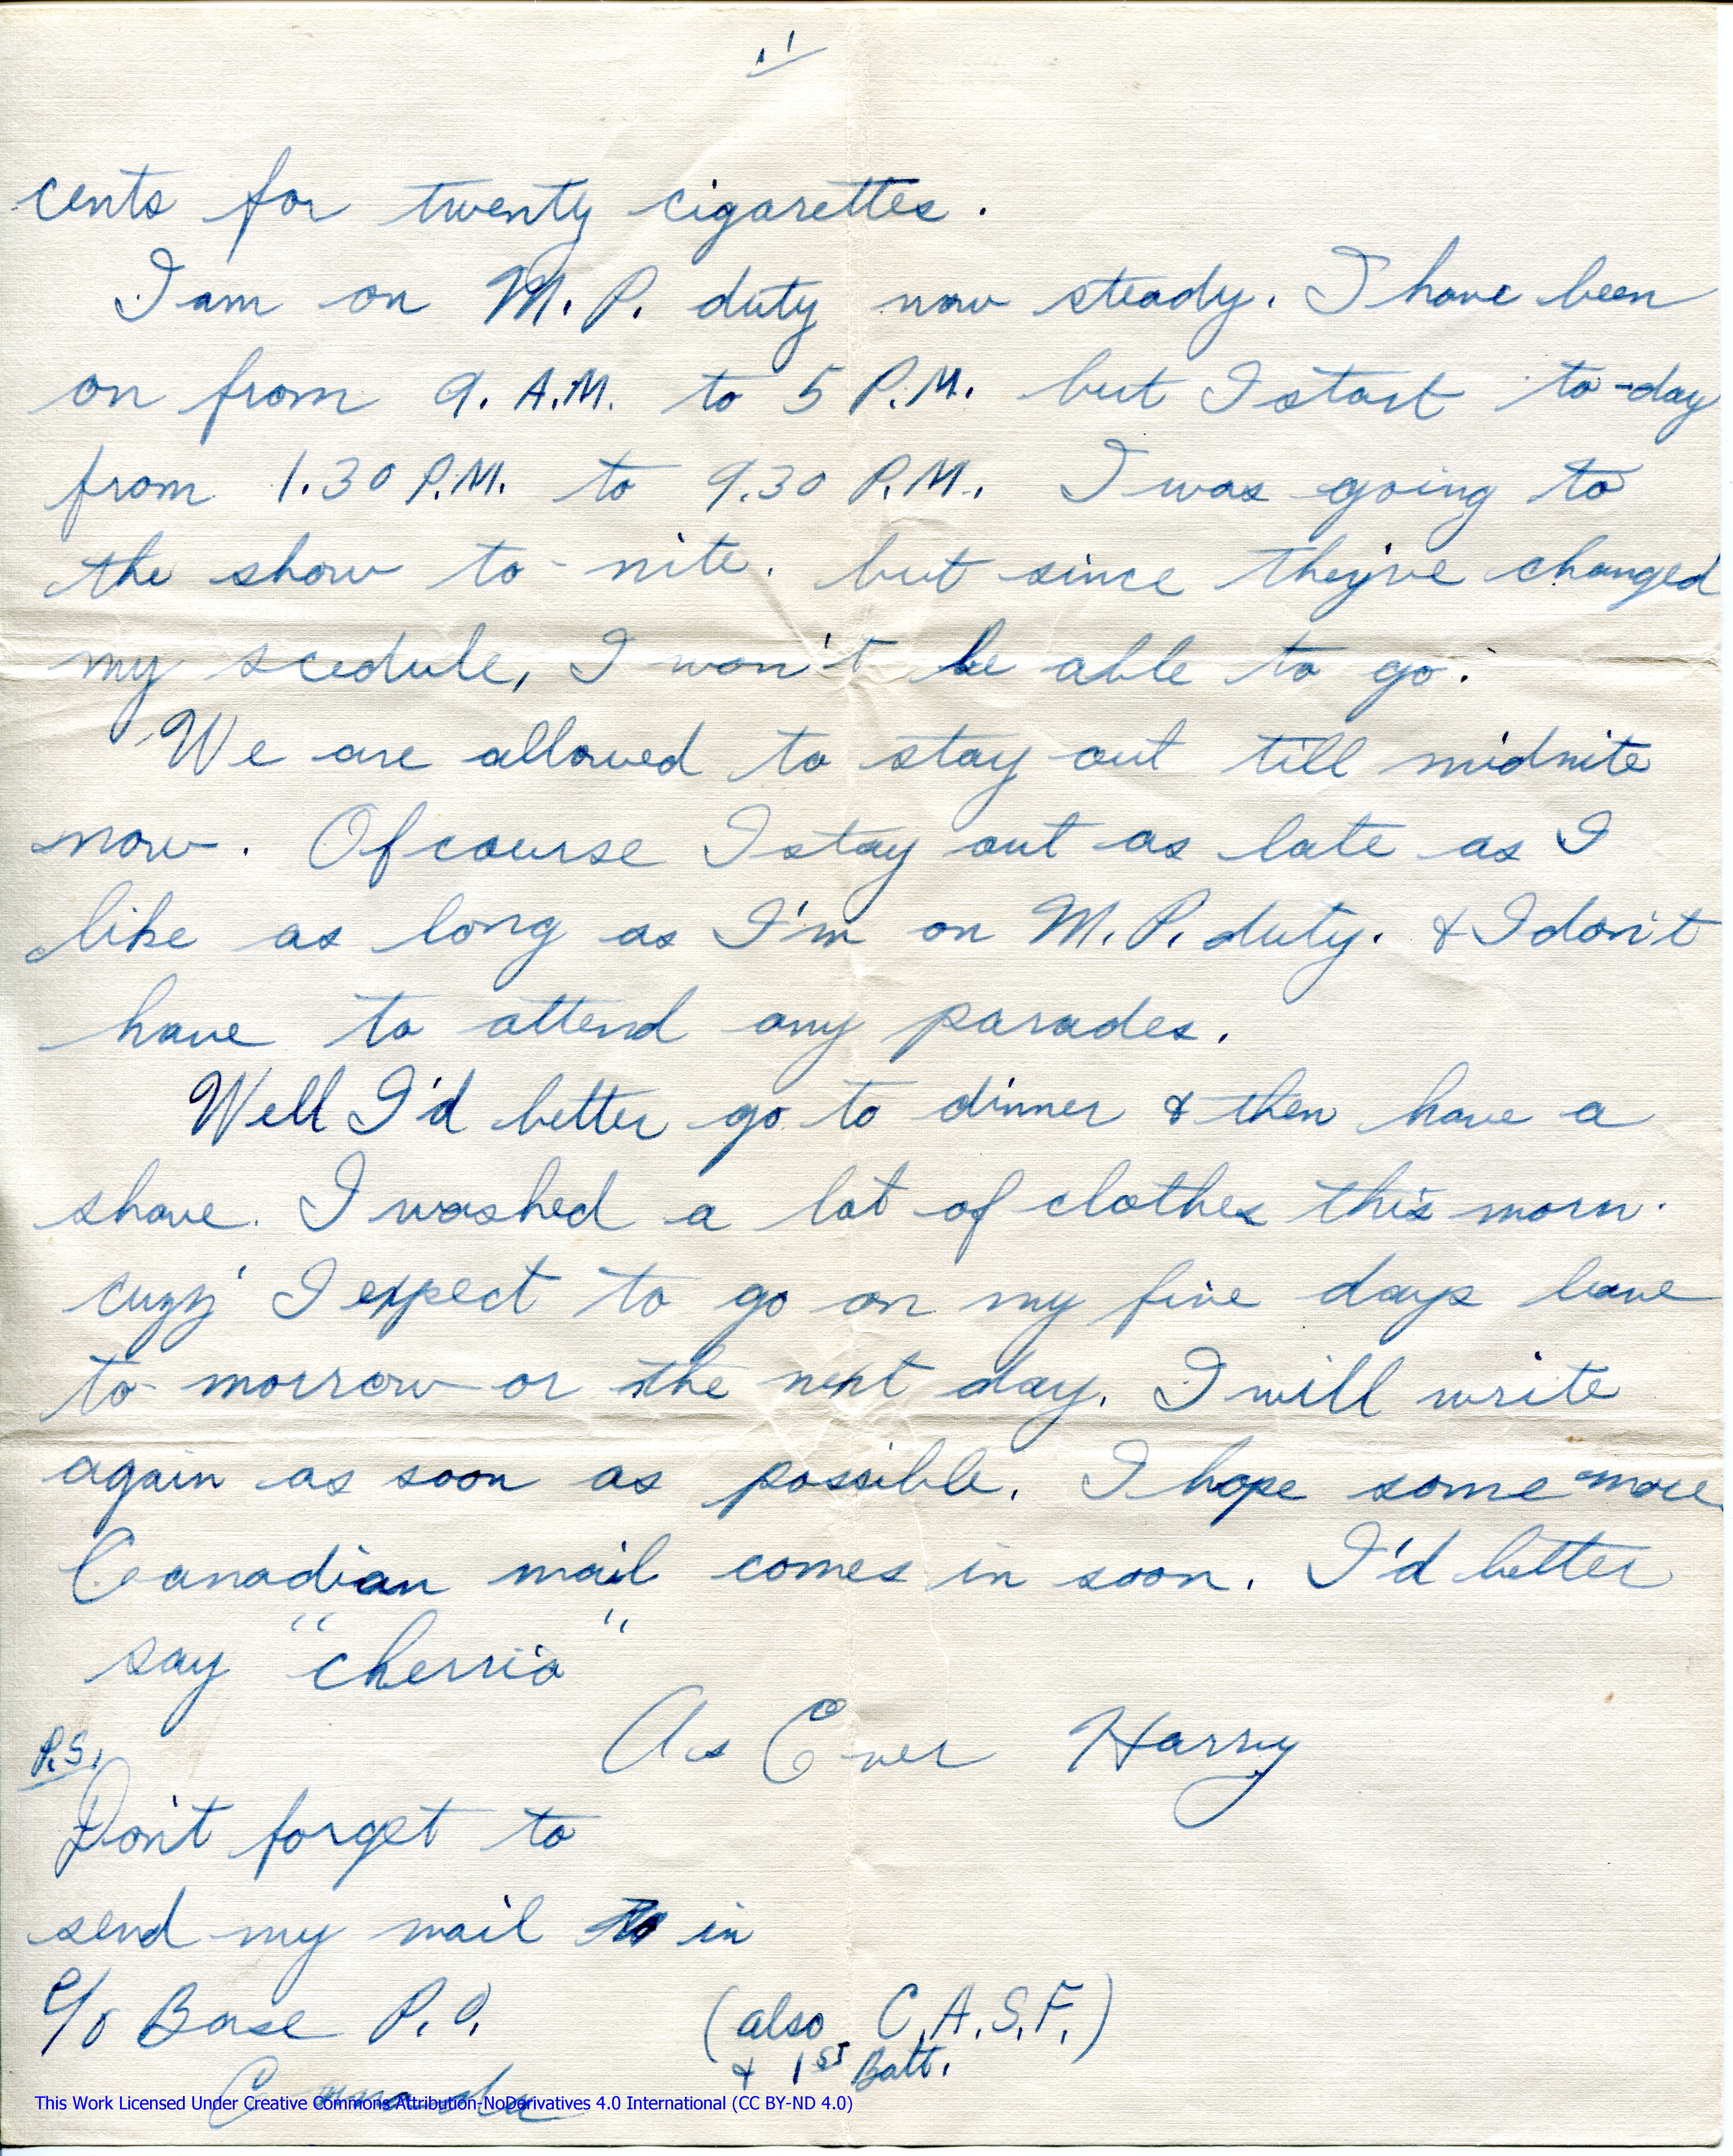 11
cents for twenty cigarettes.
I am on M.P. duty now steady. I have been
on from 9. A.M. to 5 P.M. but I start to-day
from 1.30 P.M. to 9.30 P.M. I was going to
the show to-nite. but since they've changed
my scedule, I won't be able to go.
We are allowed to stay out till midnite
now. Of course I stay out as late as I
like as long as I'm on M.P. duty. & I don't
have to attend any parades.
Well I'd better go to dinner & then have a
shave. I washed a lot of clothes this morn.
cuzz' I expect to go on my five days leave
to-morrow or the next day. I will write
again as soon as possible. I hope some more
Canadian mail comes in soon. I'd better
say "cherrio"
As Ever Harry
P.S.
Don't forget to
send my mail in
c/o Base P.O. (also C.A.S.F.)
& 1st Batt.
Canada
This Work Licensed Under Creative Commons Attribution-NoDerivatives 4.0 International (CC BY-ND 4.0)